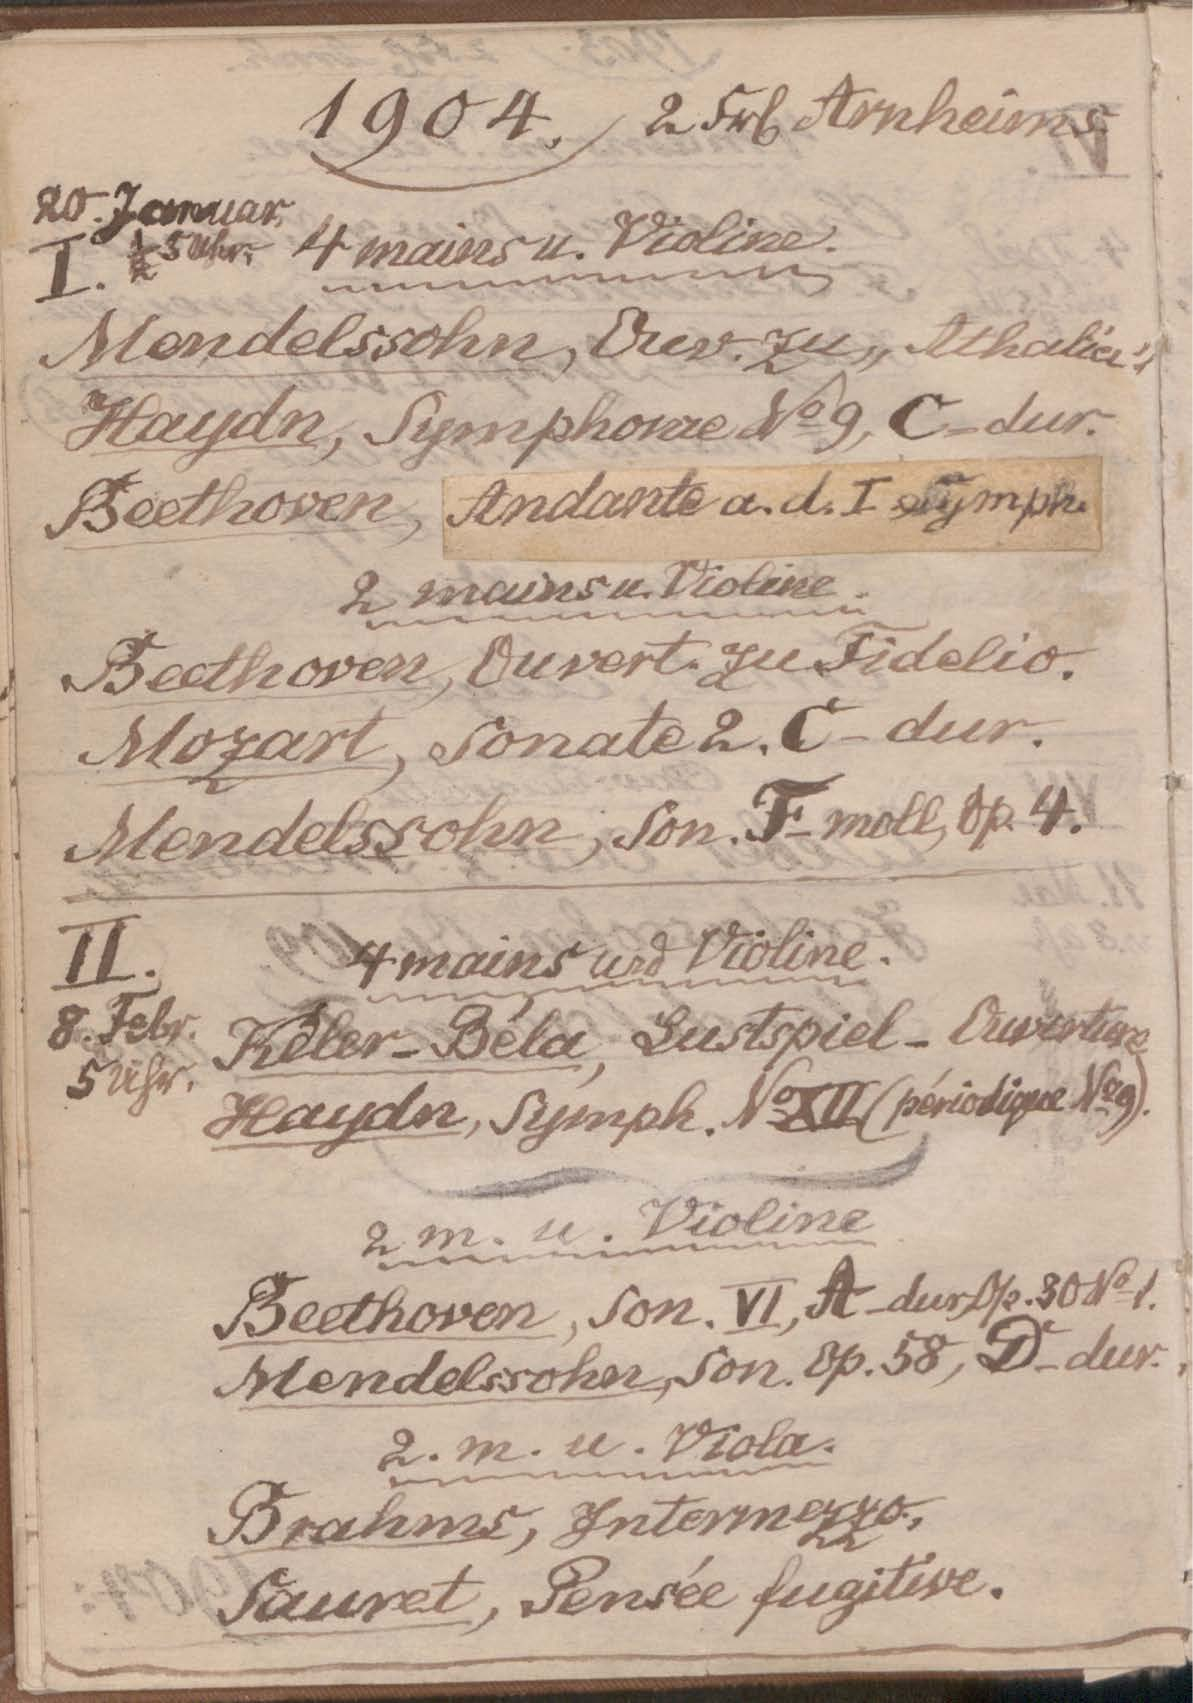 1904. 2 Frl Arnheims
20. Januar
I. ½ 5 Uhr. 4 mains u. Violine.
Mendelssohn, Ouv. zu „Athalia"
Haydn, Symphonie No 9, C-dur.
Beethoven, Andante a. d. I Symph.
2 mains u. Violine.
Beethoven, Ouvert. zu Fidelio.
Mozart, Sonate 2. C-dur.
Mendelssohn, Son. F-moll, Op. 4.
II. 4 mains und Violine.
8. Febr. Kéler-Béla, Lustspiel-Ouverture
5 Uhr.
Haydn, Symph. No XII (périodique No 9).
2 m. u. Violine
Beethoven, Son. VI, A-dur Op. 30 No 1.
Mendelssohn, Son. Op. 58, D-dur.
2. m. u. Viola.
Brahms, Intermezzo.
Sauret, Pensée fugitive.